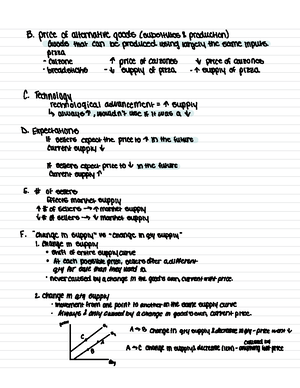 B. Price of alternative goods (substitutes & production)
Goods that can be produced using largely the same inputs
pizza
- calzone ↑ price of calzones ↓ price of calzones
- breadsticks - ↓ supply of pizza - ↑ supply of pizza
C. Technology
Technological advancement = ↑ supply
↳ always ↑, wouldn't use if it was a ↓
D. Expectations
If sellers expect the price to ↑ in the future
Current supply ↓
If sellers expect price to ↓ in the future
Current supply ↑
E. # of sellers
Effects market supply
↑ # of sellers → ↑ market supply
↓ # of sellers → ↓ market supply
F. "Change in supply" vs "change in qty supply"
1. Change in supply
• shift of entire supply curve
• At each possible price, sellers offer a different
qty for sale than they used to.
• never caused by a change in the good's own, current price.
2. change in qty supply
• movement from one point to another on the same supply curve
• Always & only caused by a change in good's own, current price.
price
C
A
B
qty
A → B change in qty supply & decrease in qty - price
A → C change in supply & decrease - anything but price
caused by